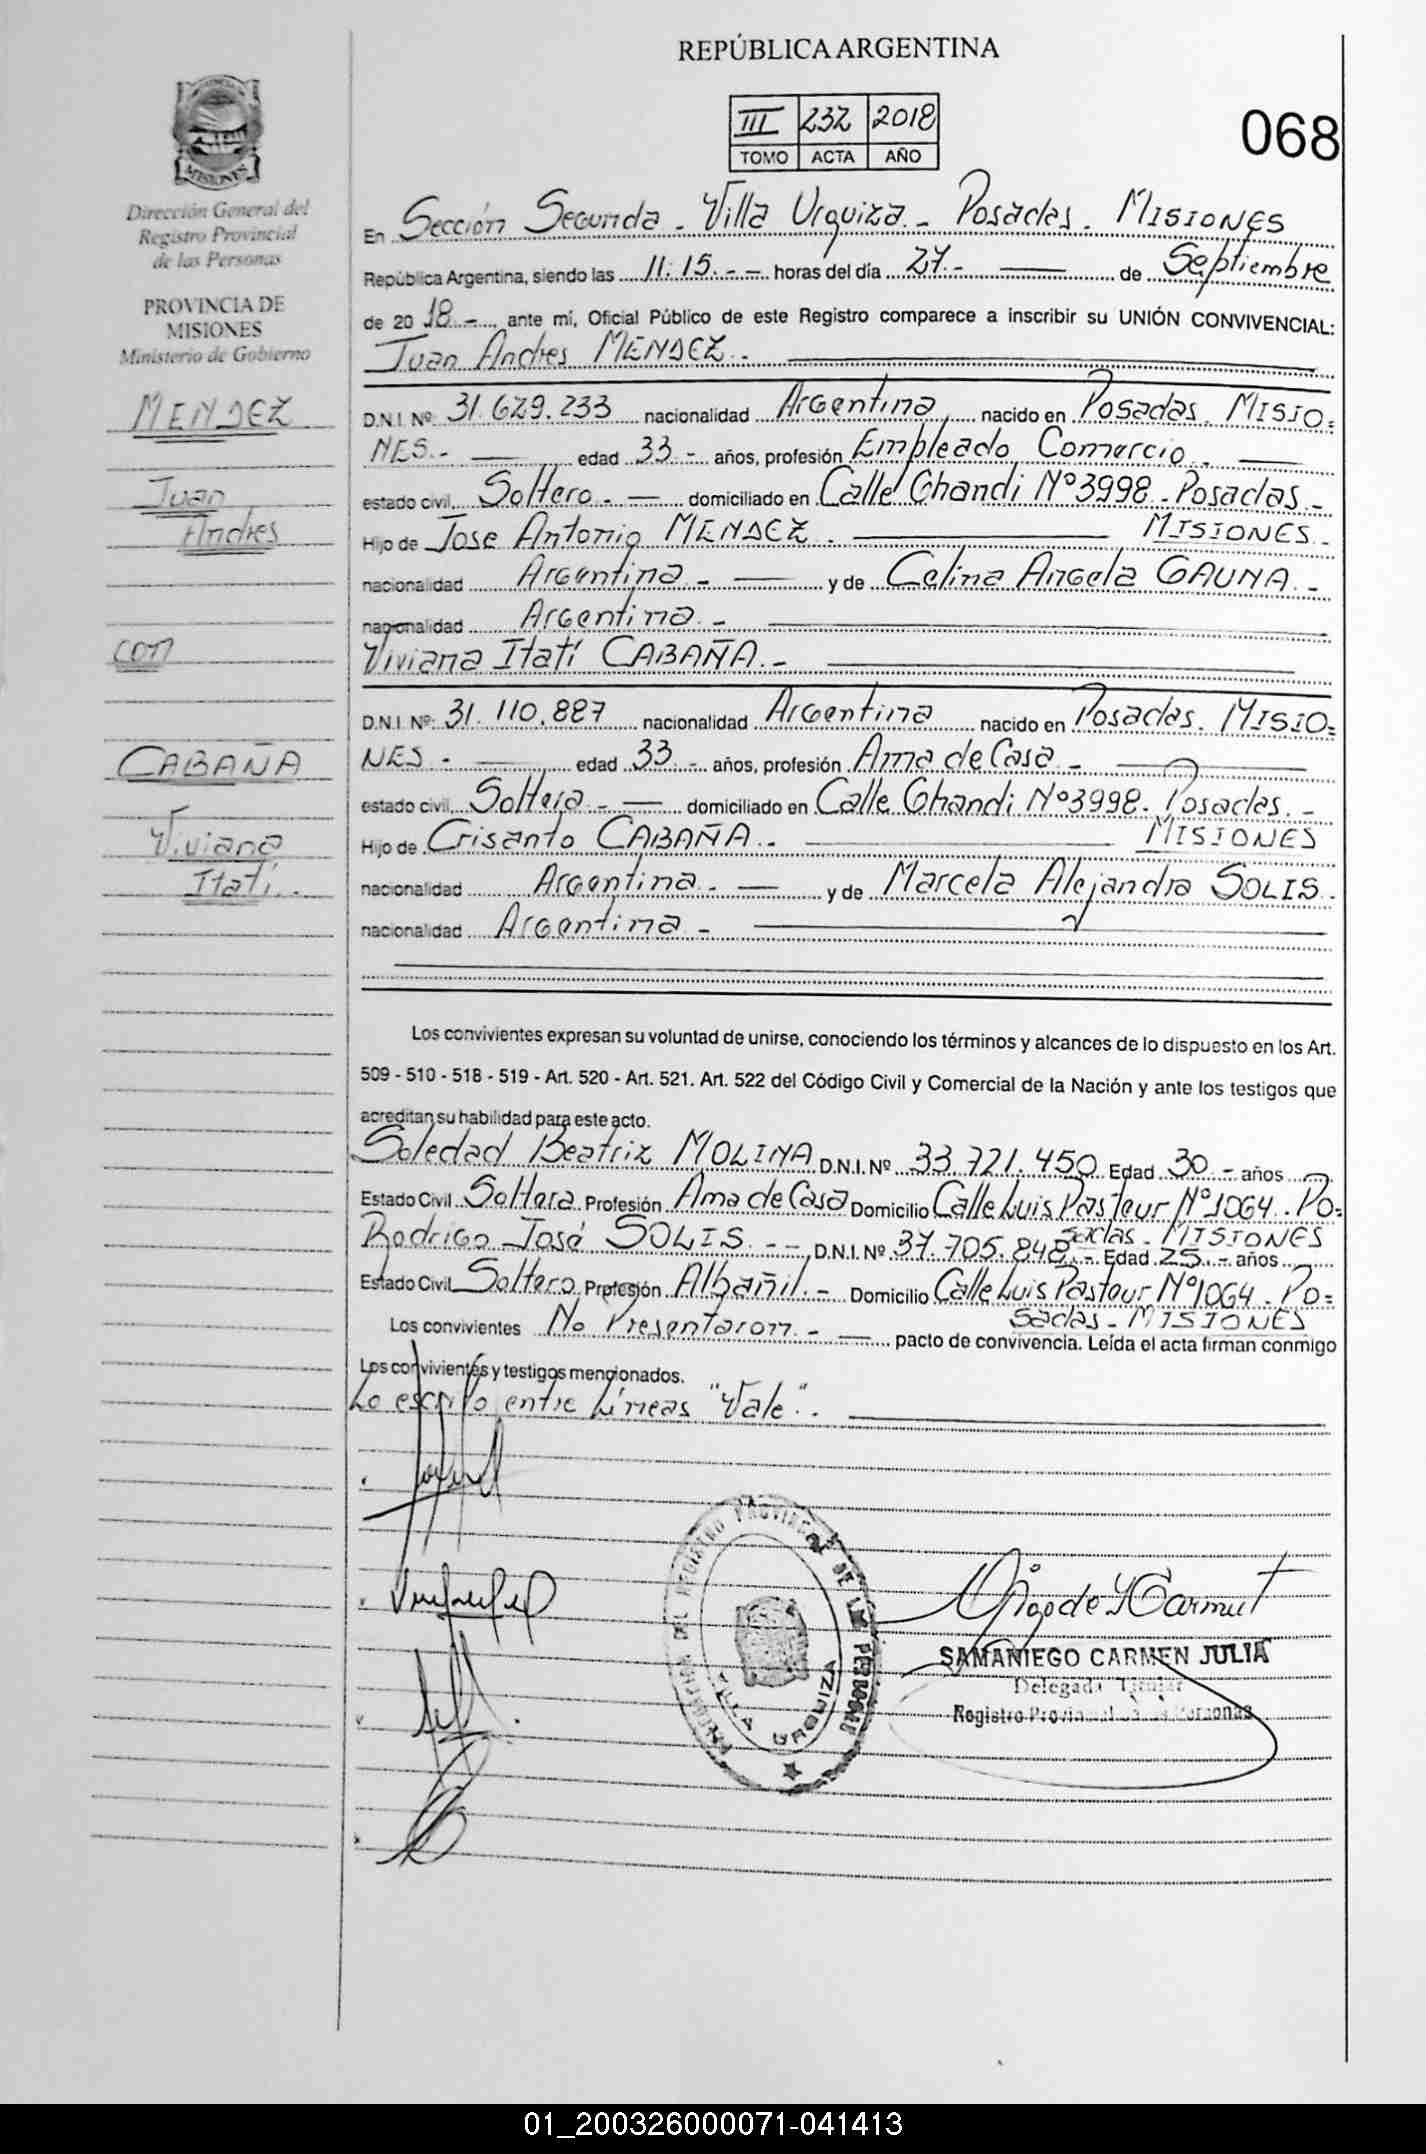 REPÚBLICA ARGENTINA
III 232 2018
TOMO ACTA AÑO
068
MISIONES
Dirección General del
Registro Provincial
de las Personas
PROVINCIA DE
MISIONES
Ministerio de Gobierno
MENDEZ
Juan
Andres
con
CABAÑA
Viviana
Itatí.-
En Sección Segunda - Villa Urquiza.- Posadas. MISIONES
República Argentina, siendo las 11:15.- - horas del día 27.- — de Septiembre
de 20 18.- ante mí, Oficial Público de este Registro comparece a inscribir su UNIÓN CONVIVENCIAL:
Juan Andres MENDEZ.-
D.N.I. Nº 31.629.233 nacionalidad Argentina nacido en Posadas. MISIO=
NES.- — edad 33.- años, profesión Empleado Comercio.- —
estado civil Soltero.- — domiciliado en Calle Ghandi Nº3998.-Posadas.-
Hijo de Jose Antonio MENDEZ. — MISIONES.-
nacionalidad Argentina.- — y de Celina Angela GAUNA.-
nacionalidad Argentina.-
Viviana Itatí CABAÑA.-
D.N.I. Nº 31.110.887 nacionalidad Argentina nacido en Posadas. MISIO=
NES.- — edad 33.- años, profesión Ama de Casa.- —
estado civil Soltera.- — domiciliado en Calle Ghandi Nº3998. Posadas.-
Hijo de Crisanto CABAÑA.- — MISIONES
nacionalidad Argentina.- — y de Marcela Alejandra SOLIS.-
nacionalidad Argentina.-
Los convivientes expresan su voluntad de unirse, conociendo los términos y alcances de lo dispuesto en los Art.
509 - 510 - 518 - 519 - Art. 520 - Art. 521. Art. 522 del Código Civil y Comercial de la Nación y ante los testigos que
acreditan su habilidad para este acto.
Soledad Beatriz MOLINA D.N.I. Nº 33.721.450 Edad 30.- años
Estado Civil Soltera Profesión Ama de Casa Domicilio Calle Luis Pasteur Nº1064. Po=
sadas - MISIONES
Rodrigo José SOLIS.- - D.N.I. Nº 37.705.848.- Edad 25.- años
Estado Civil Soltero Profesión Albañil.- Domicilio Calle Luis Pasteur Nº1064. Po=
sadas - MISIONES
Los convivientes No Presentaron.- — pacto de convivencia. Leída el acta firman conmigo
Los convivientes y testigos mencionados.
Lo escrito entre Líneas "Vale".-
DEL REGISTRO PROVINCIAL DE LAS PERSONAS
VILLA URQUIZA
SAMANIEGO CARMEN JULIA
Delegada Titular
Registro Provincial de las Personas
01_200326000071-041413